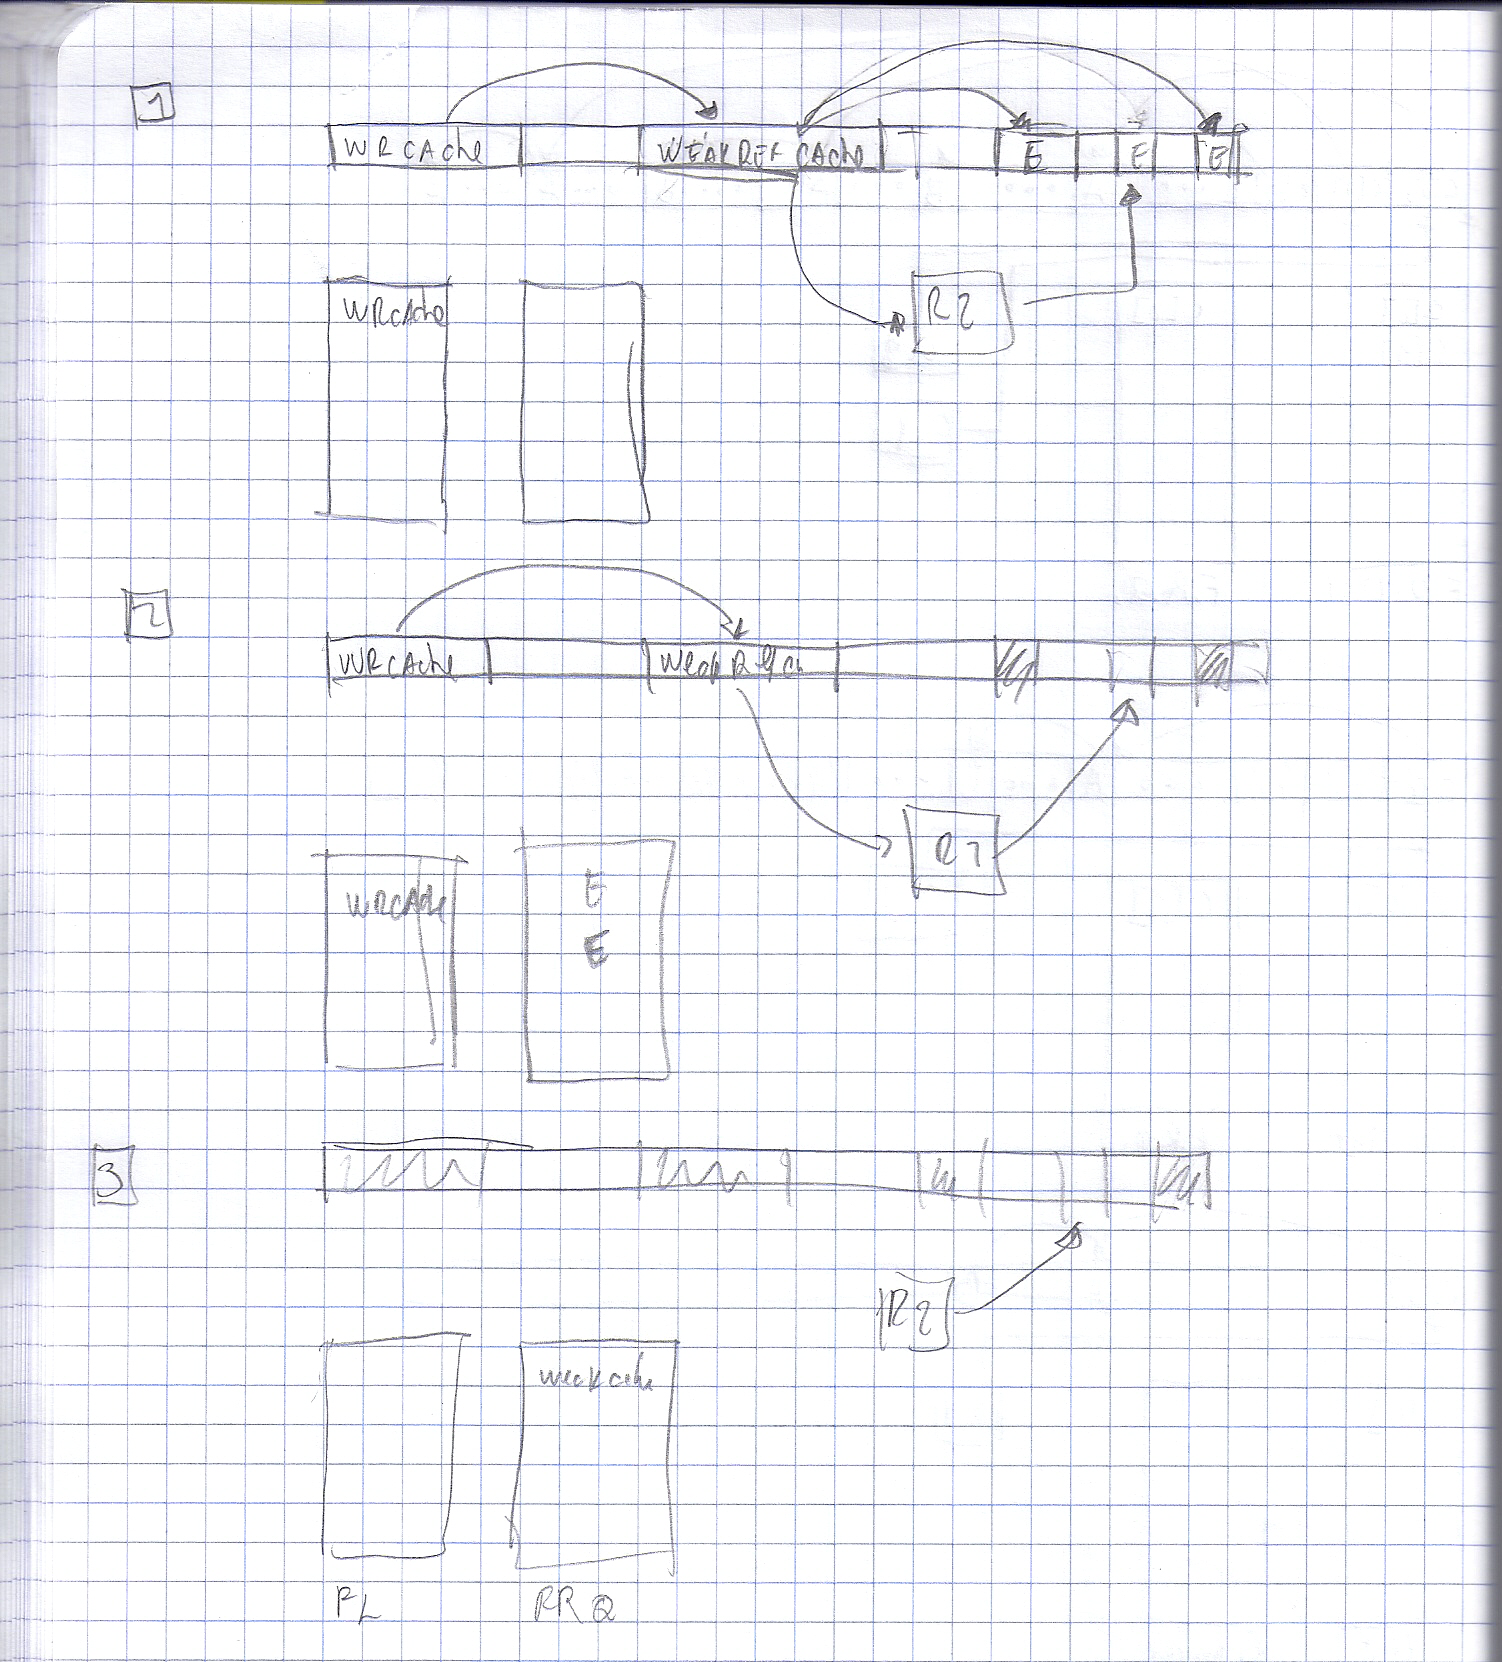 1
WRCAche WEAKREF CAche E E E
R2
WRCAche
2
WRCAche
WRCAche E
E
3
R2
weakcache
FL RRQ